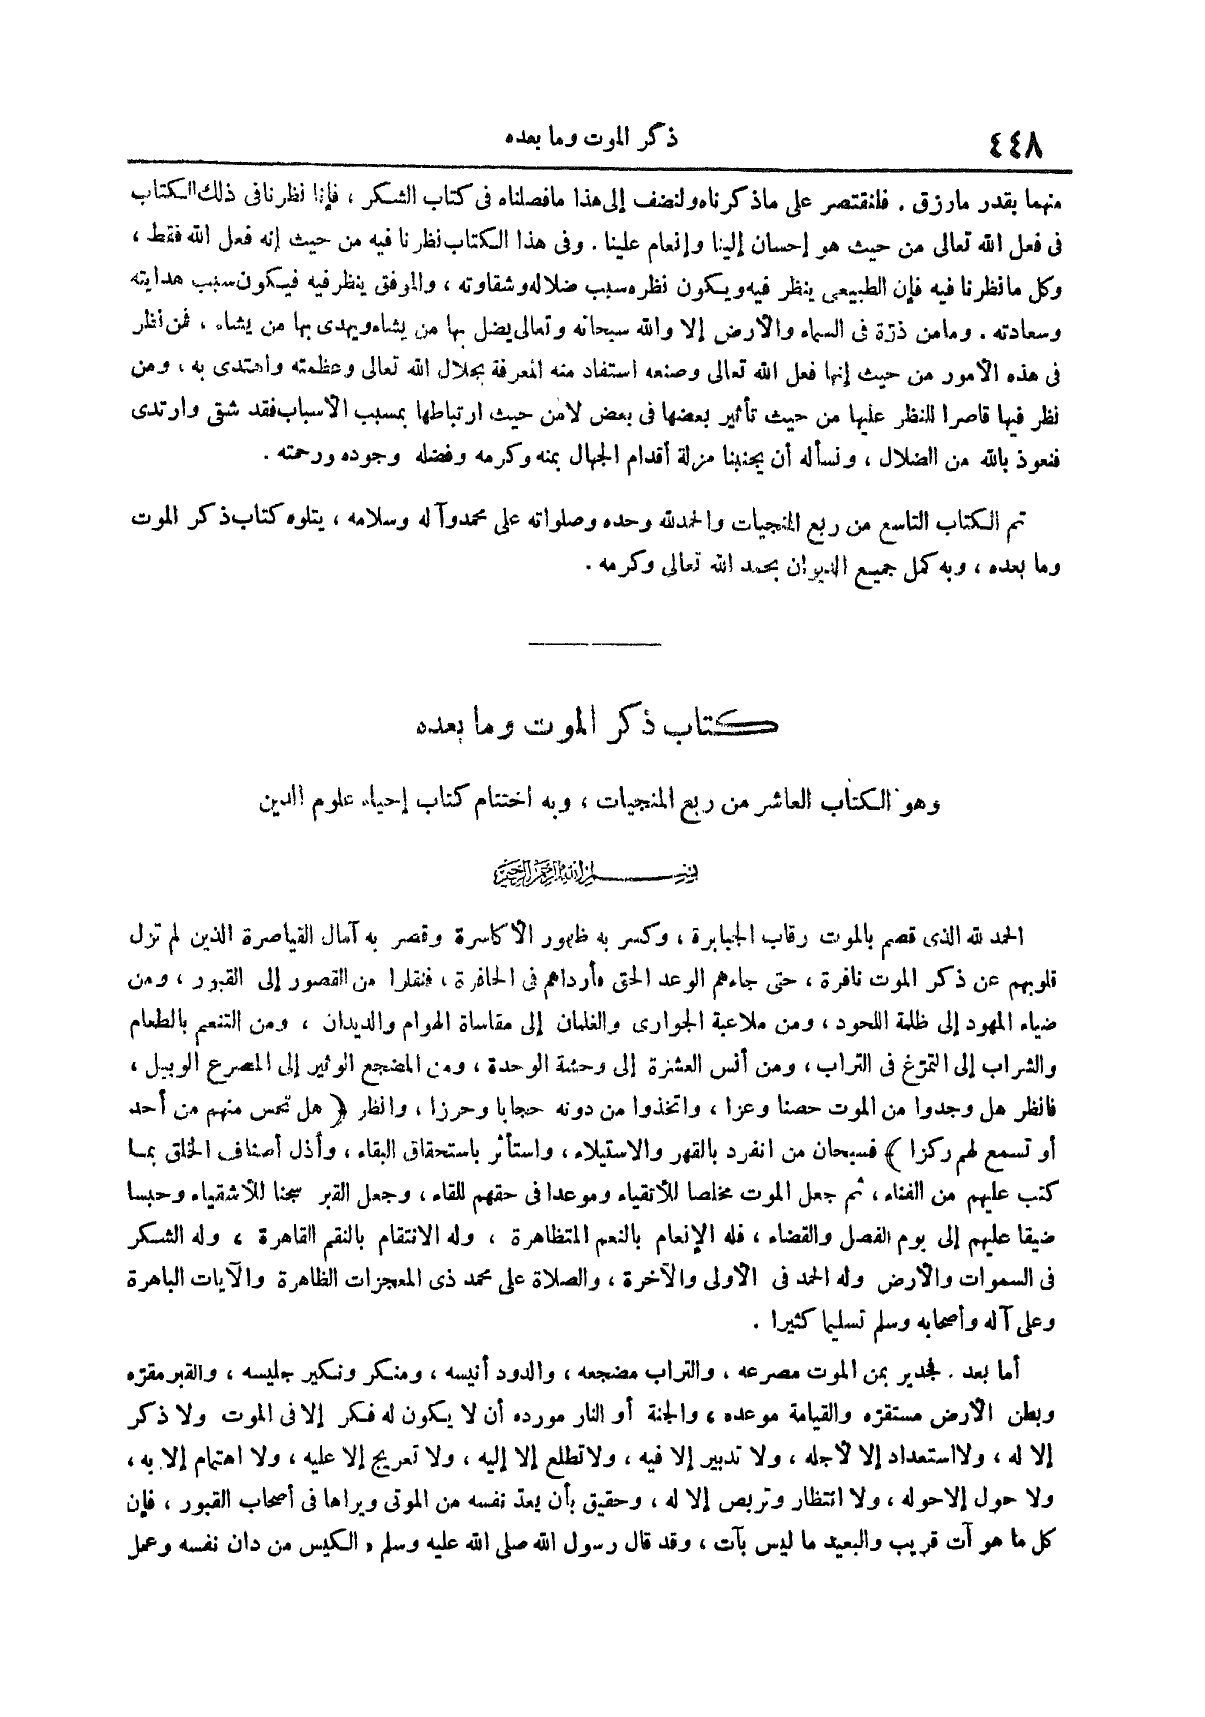 ٤٤٨
ذكر الموت وما بعده
منهما بقدر مارزق . فلنقتصر على ماذكرناه ولنضف إلى هذا مافصلناه فى كتاب الشكر ، فإذا نظرنا فى ذلك الكتاب
فى فعل الله تعالى من حيث هو إحسان إلينا وإنعام علينا . وفى هذا الكتاب نظرنا فيه من حيث إنه فعل الله فقط ،
وكل مانظرنا فيه فإن الطبيعى ينظر فيه ويكون نظره سبب ضلاله وشقاوته ، والموفق ينظر فيه فيكون سبب هدايته
وسعادته . ومامن ذرّة فى السماء والأرض إلا والله سبحانه وتعالى يضل بها من يشاء ويهدى بها من يشاء ، فمن نظر
فى هذه الأمور من حيث إنها فعل الله تعالى وصنعه استفاد منه المعرفة بجلال الله تعالى وعظمته واهتدى به ، ومن
نظر فيها قاصرا للنظر عليها من حيث تأثير بعضها فى بعض لامن حيث ارتباطها بمسبب الأسباب فقد شقى وارتدى
فنعوذ بالله من الضلال ، ونسأله أن يجنبنا مزلة أقدام الجهال بمنه وكرمه وفضله وجوده ورحمته .
تم الكتاب التاسع من ربع المنجيات والحمدلله وحده وصلواته على محمد وآله وسلامه ، يتلوه كتاب ذكر الموت
وما بعده ، وبه كمل جميع الديوان بحمد الله تعالى وكرمه .
كتاب ذكر الموت وما بعده
وهو الكتاب العاشر من ربع المنجيات ، وبه اختتام كتاب إحياء علوم الدين
بسم الله الرحمن الرحيم
الحمد لله الذى قصم بالموت رقاب الجبابرة ، وكسر به ظهور الأكاسرة وقصر به آمال القياصرة الذين لم تزل
قلوبهم عن ذكر الموت نافرة ، حتى جاءهم الوعد الحق فأرداهم فى الحافرة ، فنقلوا من القصور إلى القبور ، ومن
ضياء المهود إلى ظلمة اللحود ، ومن ملاعبة الجوارى والغلمان إلى مقاساة الهوام والديدان ، ومن التنعم بالطعام
والشراب إلى التمرّغ فى التراب ، ومن أنس العشرة إلى وحشة الوحدة ، ومن المضجع الوثير إلى المصرع الوبيل ،
فانظر هل وجدوا من الموت حصنا وعزا ، واتخذوا من دونه حجابا وحرزا ، وانظر ﴿ هل تحس منهم من أحد
أو تسمع لهم ركزا ﴾ فسبحان من انفرد بالقهر والاستيلاء ، واستأثر باستحقاق البقاء ، وأذل أصناف الخلق بما
كتب عليهم من الفناء ، ثم جعل الموت مخلصا للأتقياء وموعدا فى حقهم للقاء ، وجعل القبر سجنا للأشقياء وحبسا
ضيقا عليهم إلى يوم الفصل والقضاء ، فله الإنعام بالنعم المتظاهرة ، وله الانتقام بالنقم القاهرة ، وله الشكر
فى السموات والأرض وله الحمد فى الأولى والآخرة ، والصلاة على محمد ذى المعجزات الظاهرة والآيات الباهرة
وعلى آله وأصحابه وسلم تسليما كثيرا .
أما بعد . فجدير بمن الموت مصرعه ، والتراب مضجعه ، والدود أنيسه ، ومنكر ونكير جليسه ، والقبر مقرّه
وبطن الأرض مستقرّه والقيامة موعده ، والجنة أو النار مورده أن لا يكون له فكر إلا فى الموت ولا ذكر
إلا له ، ولااستعداد إلا لأجله ، ولا تدبير إلا فيه ، ولاتطلع إلا إليه ، ولا تعريج إلا عليه ، ولا اهتمام إلا به ،
ولا حول إلاحوله ، ولا انتظار وتربص إلا له ، وحقيق بأن يعدّ نفسه من الموتى ويراها فى أصحاب القبور ، فإن
كل ما هو آت قريب والبعيد ما ليس بآت ، وقد قال رسول الله صلى الله عليه وسلم « الكيس من دان نفسه وعمل